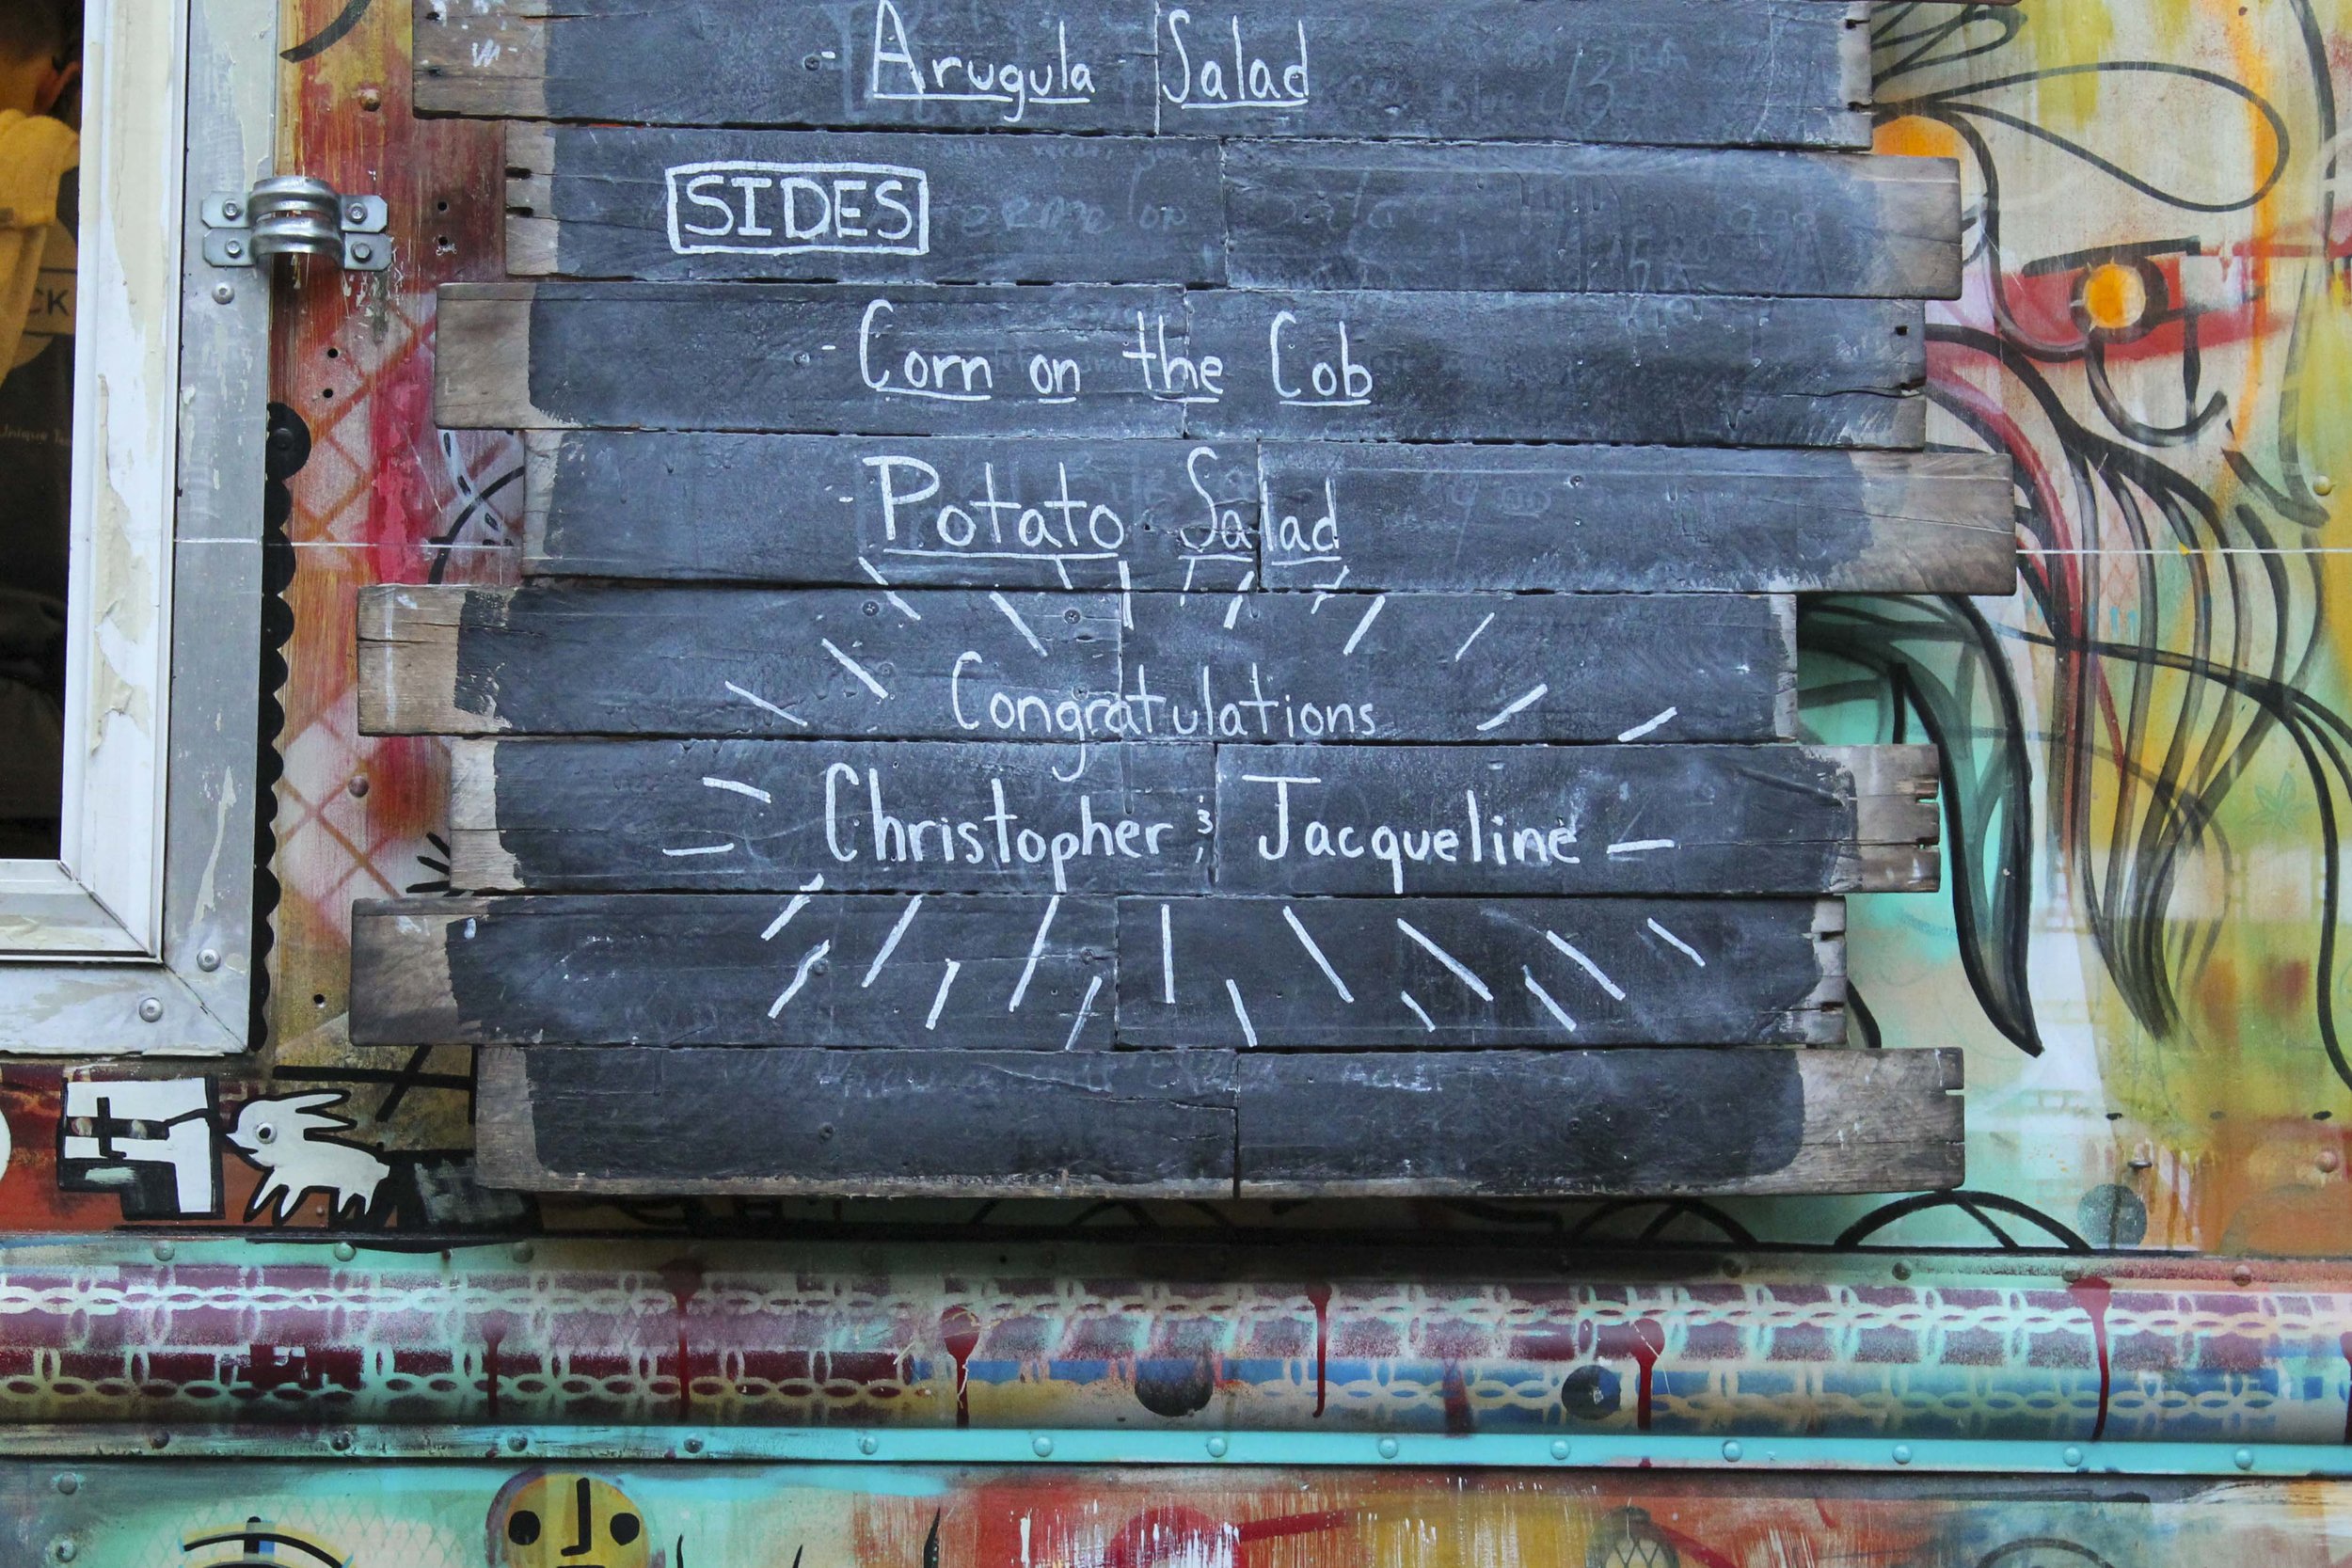 - Arugula Salad
SIDES
- Corn on the Cob
- Potato Salad
Congratulations
Christopher & Jacqueline